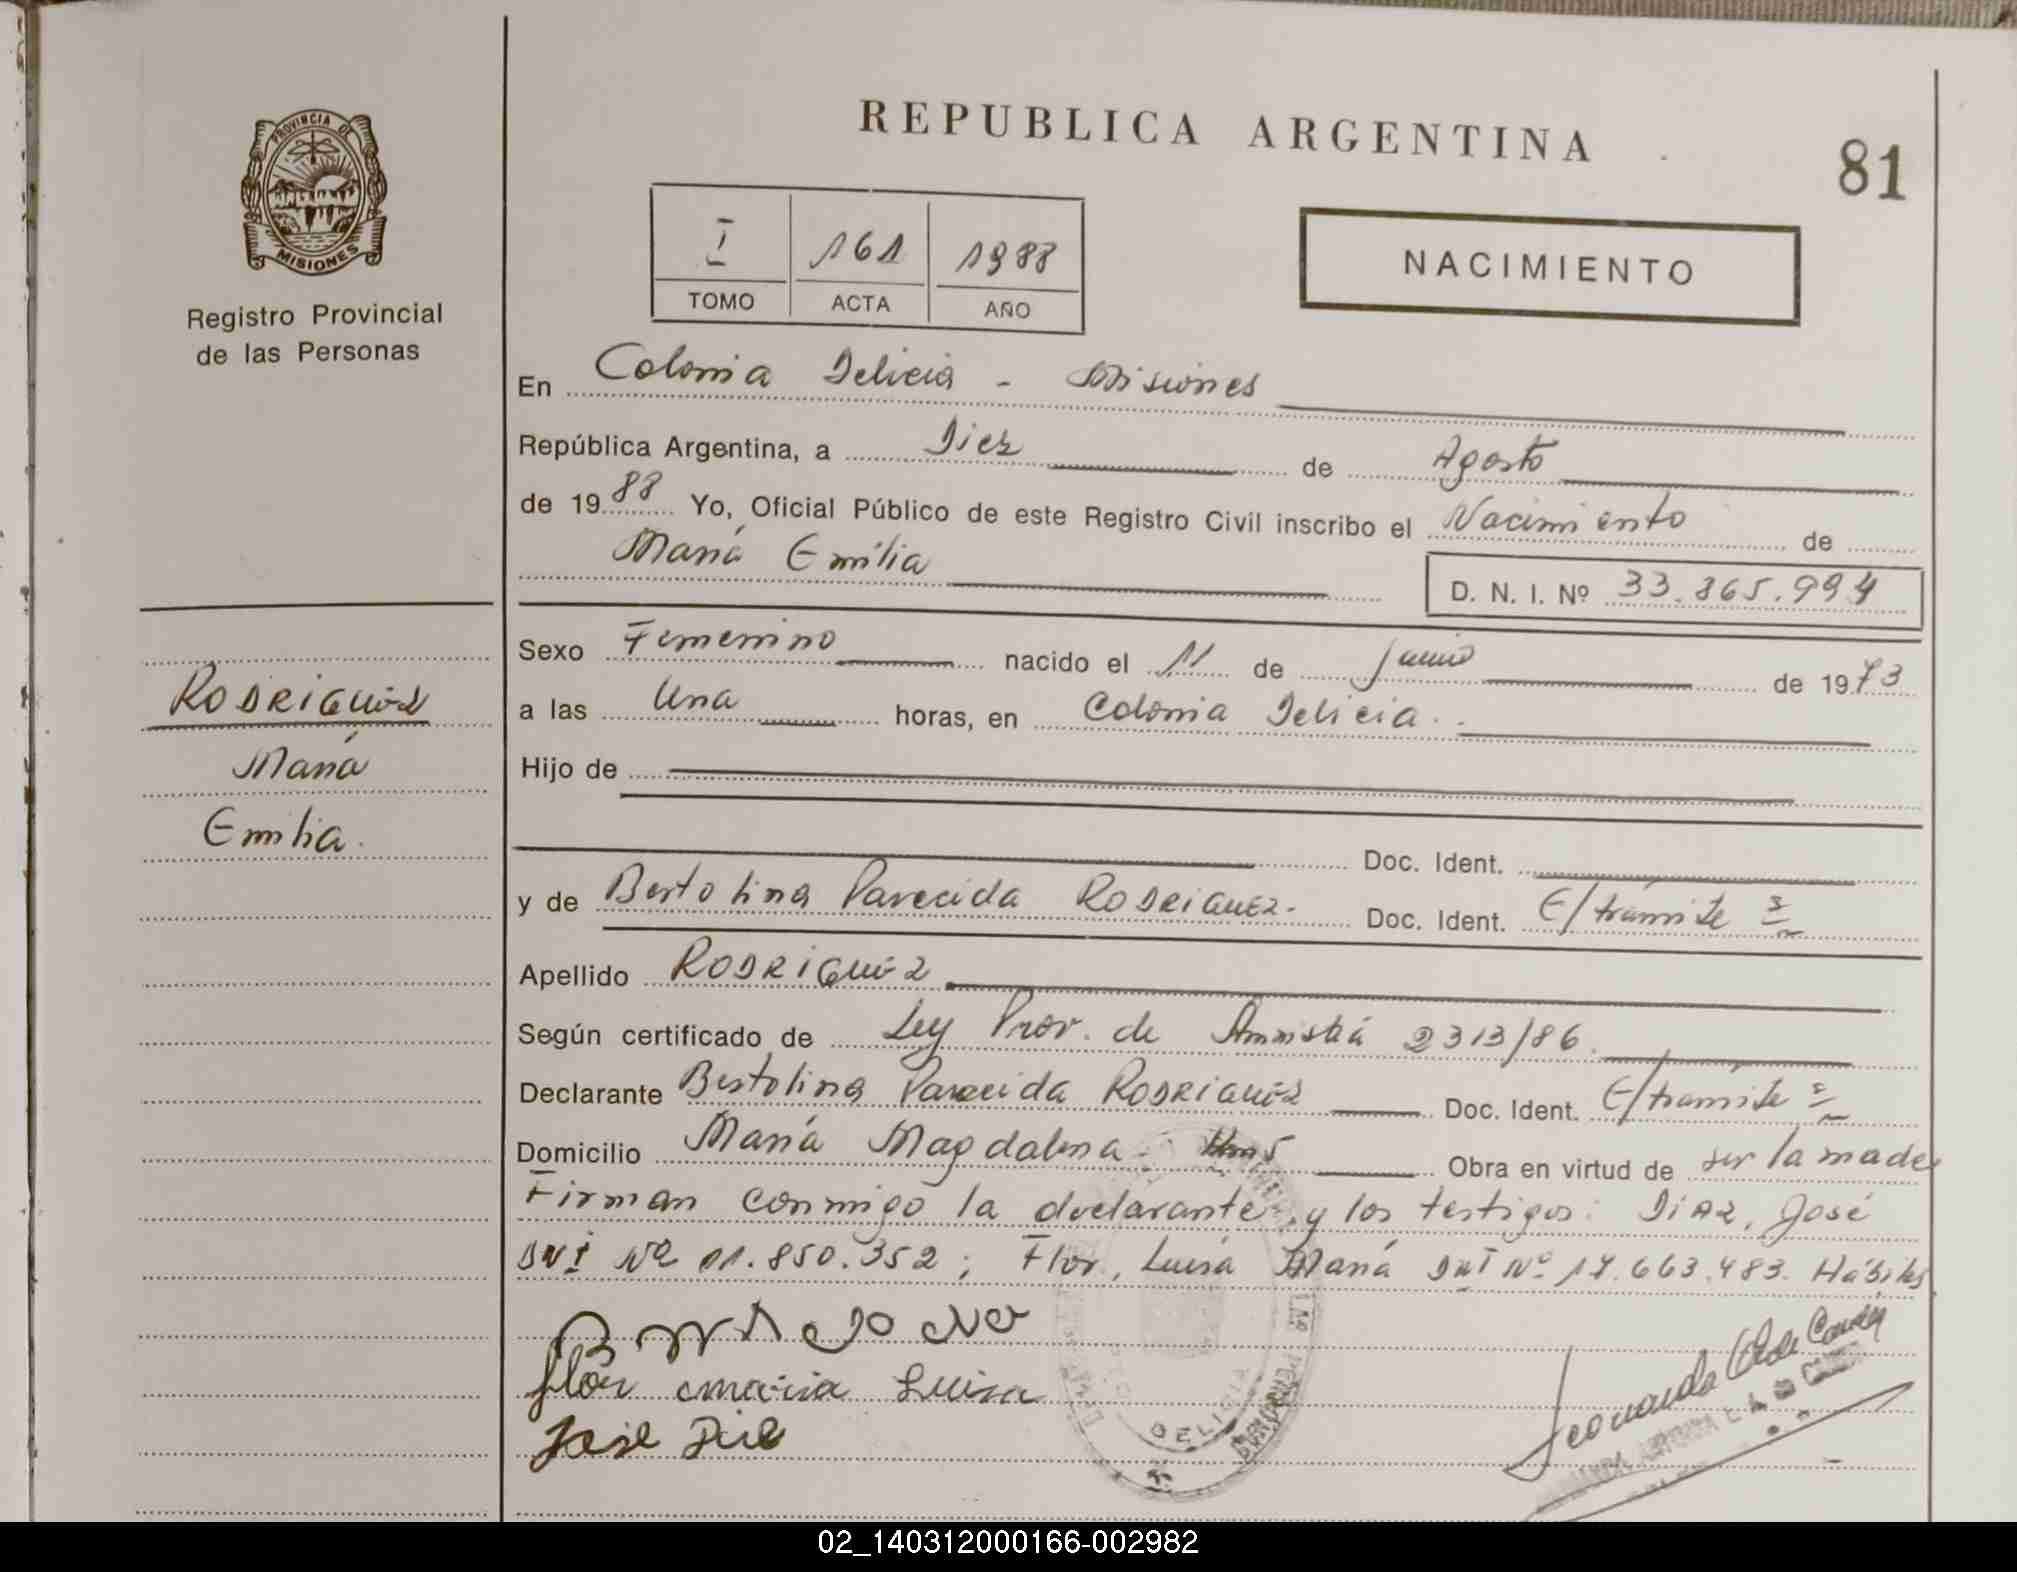 REPUBLICA ARGENTINA
81
PROVINCIA DE
MISIONES
Registro Provincial
de las Personas
I 161 1988
TOMO ACTA AÑO
NACIMIENTO
En Colonia Delicia - Misiones
República Argentina, a Diez de Agosto
de 1988 Yo, Oficial Público de este Registro Civil inscribo el Nacimiento de
María Emilia
D. N. I. Nº 33.865.994
Sexo Femenino nacido el 11 de Junio de 1973
a las Una horas, en Colonia Delicia.
Hijo de
Doc. Ident.
y de Bertolina Parecida RODRIGUEZ- Doc. Ident. E/trámite
Apellido RODRIGUEZ
Según certificado de Ley Prov. de Amnistía 2313/86.
Declarante Bertolina Parecida RODRIGUEZ Doc. Ident. E/trámite
Domicilio María Magdalena Obra en virtud de ser la madre
Firman conmigo la declarante y los testigos: DIAZ, José
DNI Nº 01.850.352; Flor, Luisa María DNI Nº 17.663.483. Hábiles
flor maria Luisa
José
DELICIA
RODRIGUEZ
María
Emilia.
02_140312000166-002982